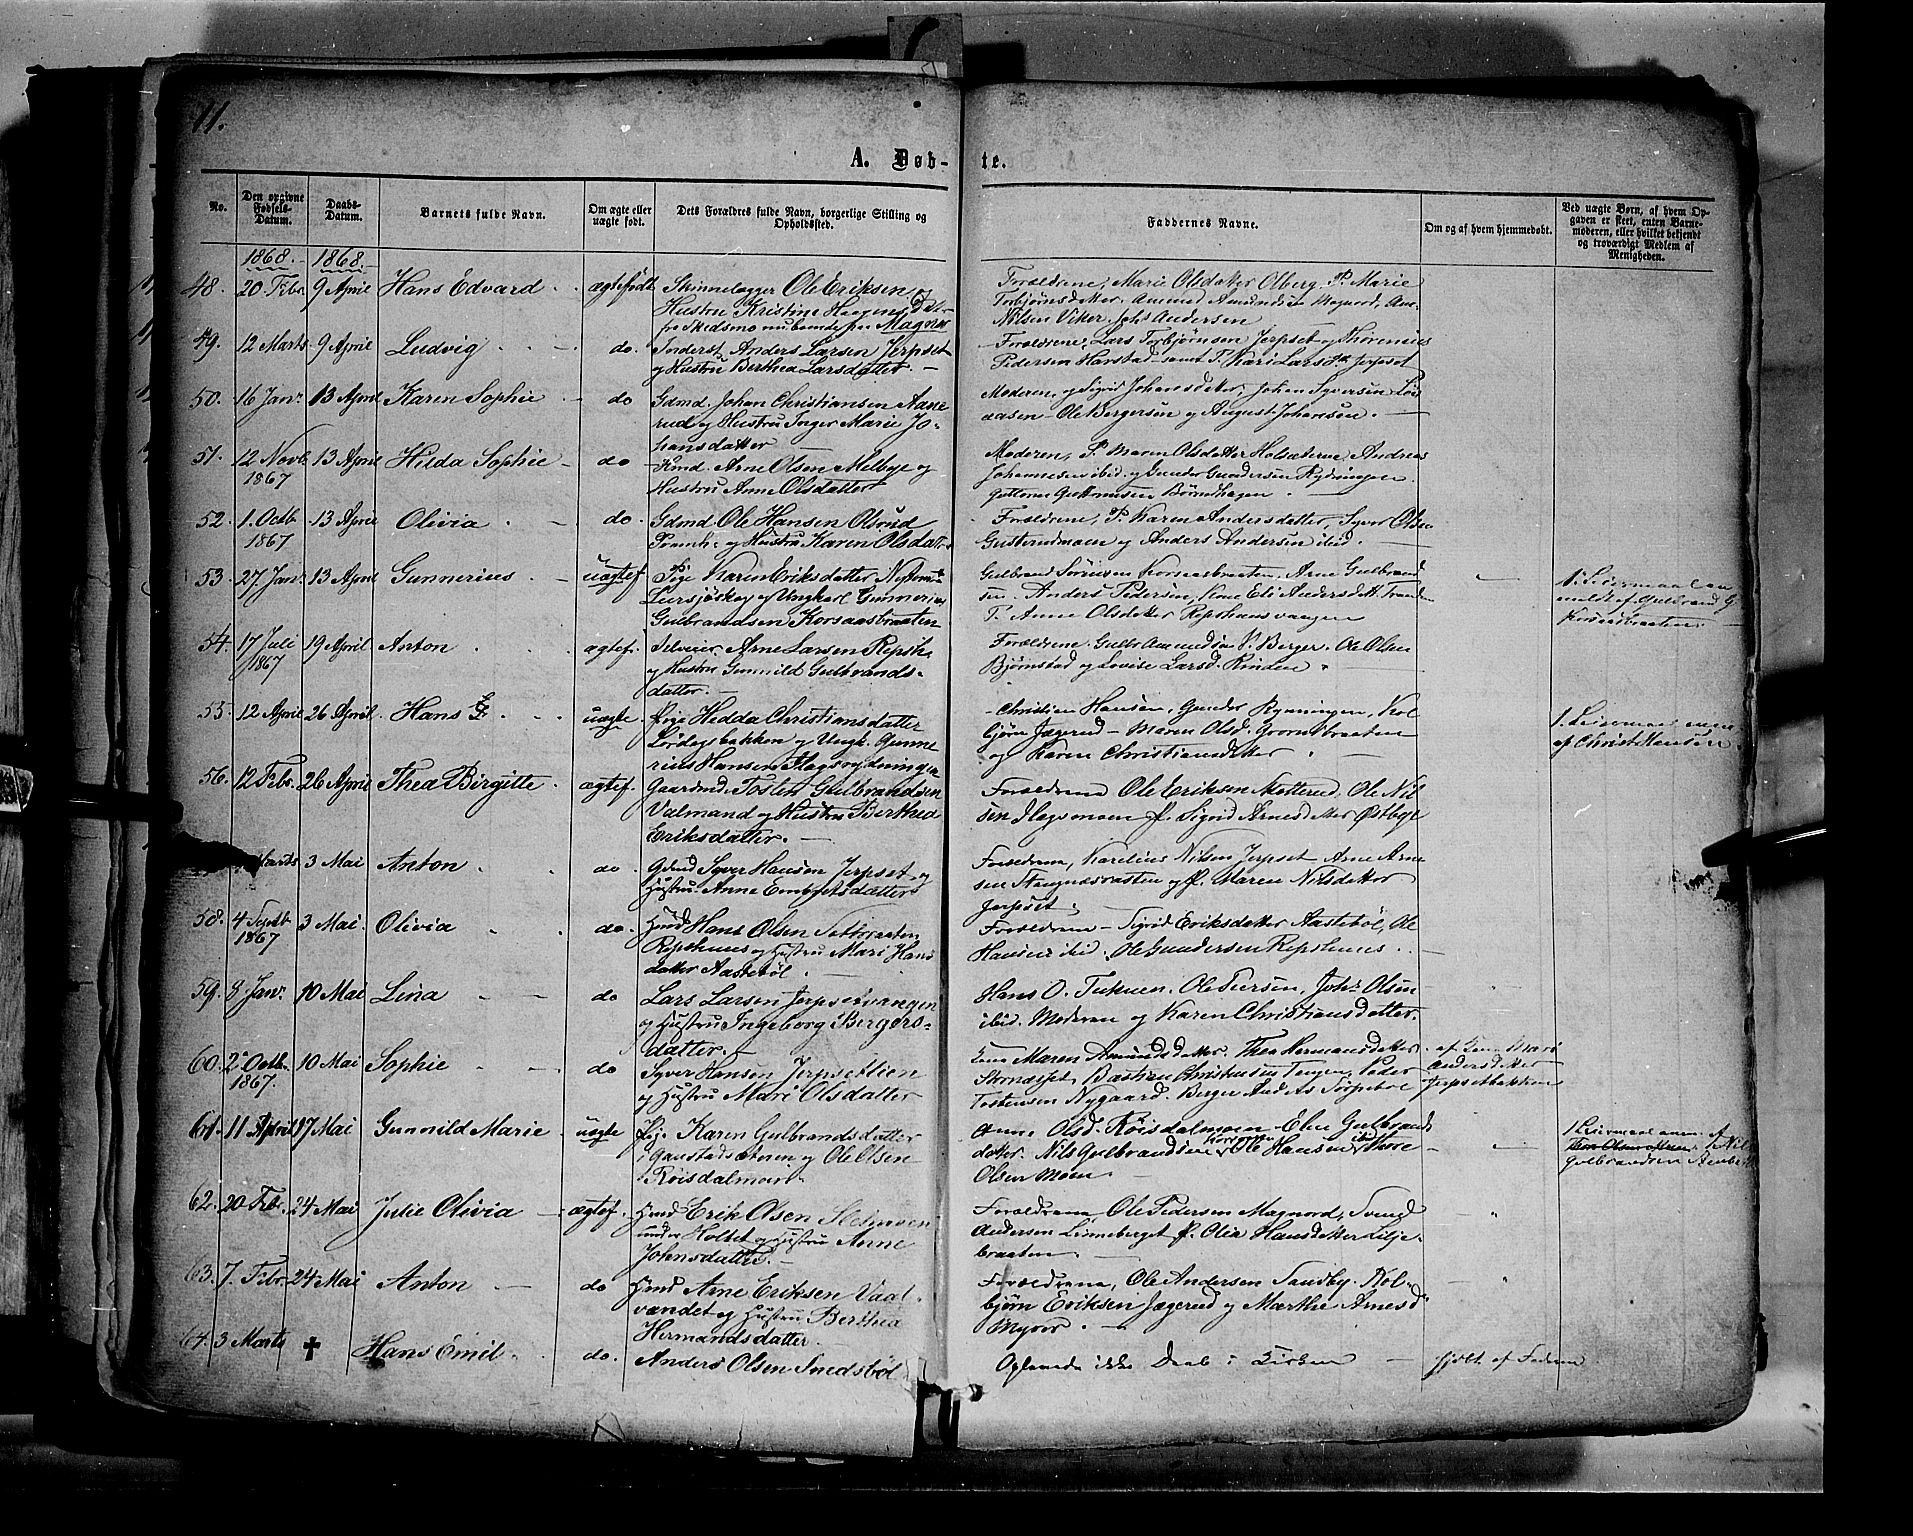 11.
A. Døb-te.
No.
Den opgivne Fødsels-Datum.
Daabs-Datum.
Barnets fulde Navn.
Om ægte eller uægte født.
Dets Forældres fulde Navn, borgerlige Stilling og Opholdssted.
Faddernes Navne.
Om og af hvem hjemmedøbt.
Ved uægte Børn, af hvem Opgaven er skeet, enten Barnemoderen, eller hvilket bekjendt og troværdigt Medlem af Menigheden.
1868. 1868.
48. 20 Febr 9 April Hans Edvard ægtefødt Skindlægger Ole Eriksen og
Hustru Kristine
Skedsmo Magnor
Forældrene, Marie Olsdatter Olberg, P. Marie
Torbjørnsdatter. Amund Amundsen Magnord,
Nilsen Viker. Johs Andersen
49. 12 Marts 9 April Ludvig do. Inderst Anders Larsen Jerpset
og Hustru Berthea Larsdatter. –
Forældrene, Lars Torbjørnsen Jerpset og Thorenius
Pedersen Harstad – samt P. Kari Larsdr Jerpset
50. 16 Janr 13 April Karen Sophie do Gdmd. Johan Christiansen Aane
rud og Hustru Inger Marie Jo-
hansdatter
Moderen, og Sigrid Johansdatter, Johan Syversen
aasen – Ole Bergersen og August Johansen. –
51. 12 Novb. 1867 13 April Hilda Sophie do Hmd. Arne Olsen Melbye og
Hustru Anne Olsdatter
Moderen, P. Maren Olsdatter Andreas
Johannesen ibid. og Gunder Gundersen Rydningen
Guttorm Guttormsen
52. 1. Octb. 1867 13 April Olivia do. Gdmd. Ole Hansen Olsrud
og Hustru Karen Olsdatt
Forældrene, P. Karen Andersdatter, Syver Olsen
Gusterudmoen og Anders Andersen ibid.
53. 27 Janr 13 April Gunnerius uægtef. Pige Karen Eriksdatter
og Ungkarl Gunnerius
Gulbrandsen Korsaasbraaten
Gulbrand Sørensen Korsaasbraaten, Arne Gulbrand
sen. Anders Pedersen, Kone Eli Andersdatt.
P. Anne Olsdatter Repshusvangen
1. Leiermaal an
meldt af Gulbrand G.
Korsaasbraaten
54. 17 Juli 1867 19 April Anton ægtef. Selveier Arne Larsen Repsh.
og Hustru Gunnild Gulbrands-
datter. –
Forældrene. Gulbr Amundsen V. Berger. Ole Olsen
Bjørnstad og Lovise Larsd. Rinden
55. 12 April 26 April Hans G. uægte. Pige Hedda Christiansdatter
Lørdagsbakken og Ungk. Gunne
rius Hansen Hagsrydningen
Christian Hansen, Gunder Rymningen, Kol
bjørn Jægerud – Maren Olsd.
og Karen Christiansdatter
1. Leiermaal anm.
af Christ Hansen.
56. 12 Febr. 26 April Thea Birgitte ægtef. Gaardmd. Tosten Gulbrandsen
Valmand og Hustru Berthea
Eriksdatter. –
Forældrene Ole Eriksen Møtterud. Ole Nil
sen Hagsmoen P. Sigrid Arnesdatter Østbye
Marts 3 Mai Anton do. Gdmd Syver Hansen Jerpset og
Hustru Anne Embretsdatter
Forældrene, Karelius Nilsen Jerpset Arne Arne
sen og P. Maren Nilsdatter
Jerpset.
58. 4 Septb. 1867 3 Mai. Olivia do. Hmd Hans Olsen Sætbraaten
Repshuus og Hustru Mari Hans
datter Aastebøl. –
Forældrene – Sigrid Eriksdatter Aastebøl, Ole
Hansen ibid. Ole Gundersen Repshuus.
59. 8 Janr. 10 Mai Lina do Lars Larsen Jerpsetvangen
og Hustru Ingeborg Bergers-
datter. –
Hans O. Ole Persen, Johs Olsen
ibid. Moderen og Karen Christiansdatter.
60. 2 Octb. 1867. 10 Mai Sophie do Syver Hansen Jerpsetlien
og Hustru Mari Olsdatter
Kone Maren Amundsdatter. Thea Hermansdatter
Strandset, Bastian Christiansen Tangen, Peder
Tostensen Nygaard. Berger
af Kone Mari
Andersdatter
Jerpsetbakken
61. 11 April 17 Mai Gunnild Marie uægte Pige Karen Gulbrandsdatter
i Gaustadsæteren og Ole Olsen
Røisdalmoen.
Anne Olsd. Røisdalmoen – Elen Gulbrands
datter. Nils Gulbrandsen Ole Hansen ibid Thore
Olsen Moen.
1 Leiermaal anm. af
Ole Olsen Moen Nils
Gulbrandsen
62. 20 Feb. 24 Mai Julie Olivia ægtef. Hmd Erik Olsen
under Holtet og Hustru Anne
Johnsdatter. –
Forældrene Ole Pedersen Magnord, Svend
Andersen Linneberget P. Olia Hansdatter Lilje-
braaten
63. 7. Febr. 24 Mai Anton do Hmd Arne Eriksen Vaal-
vandet og Hustru Berthea
Hermandsdatter.
Forældrene, Ole Andersen Sandby. Kol-
bjørn Eriksen Jægerud og Marthe Arnesd
Myrer. –
64. 3 Marts † Hans Emil do. Anders Olsen Smedsbøl
Oplevede ikke Daab i Kirken – hjdbt. af Faderen